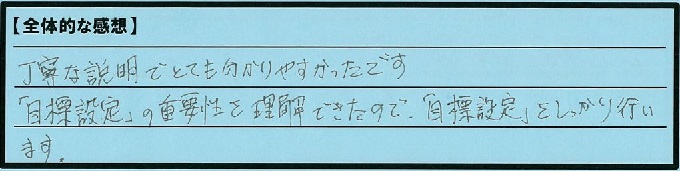 【全体的な感想】
丁寧な説明でとても分かりやすかったです
「目標設定」の重要性を理解できたので、「目標設定」をしっかり行い
ます。